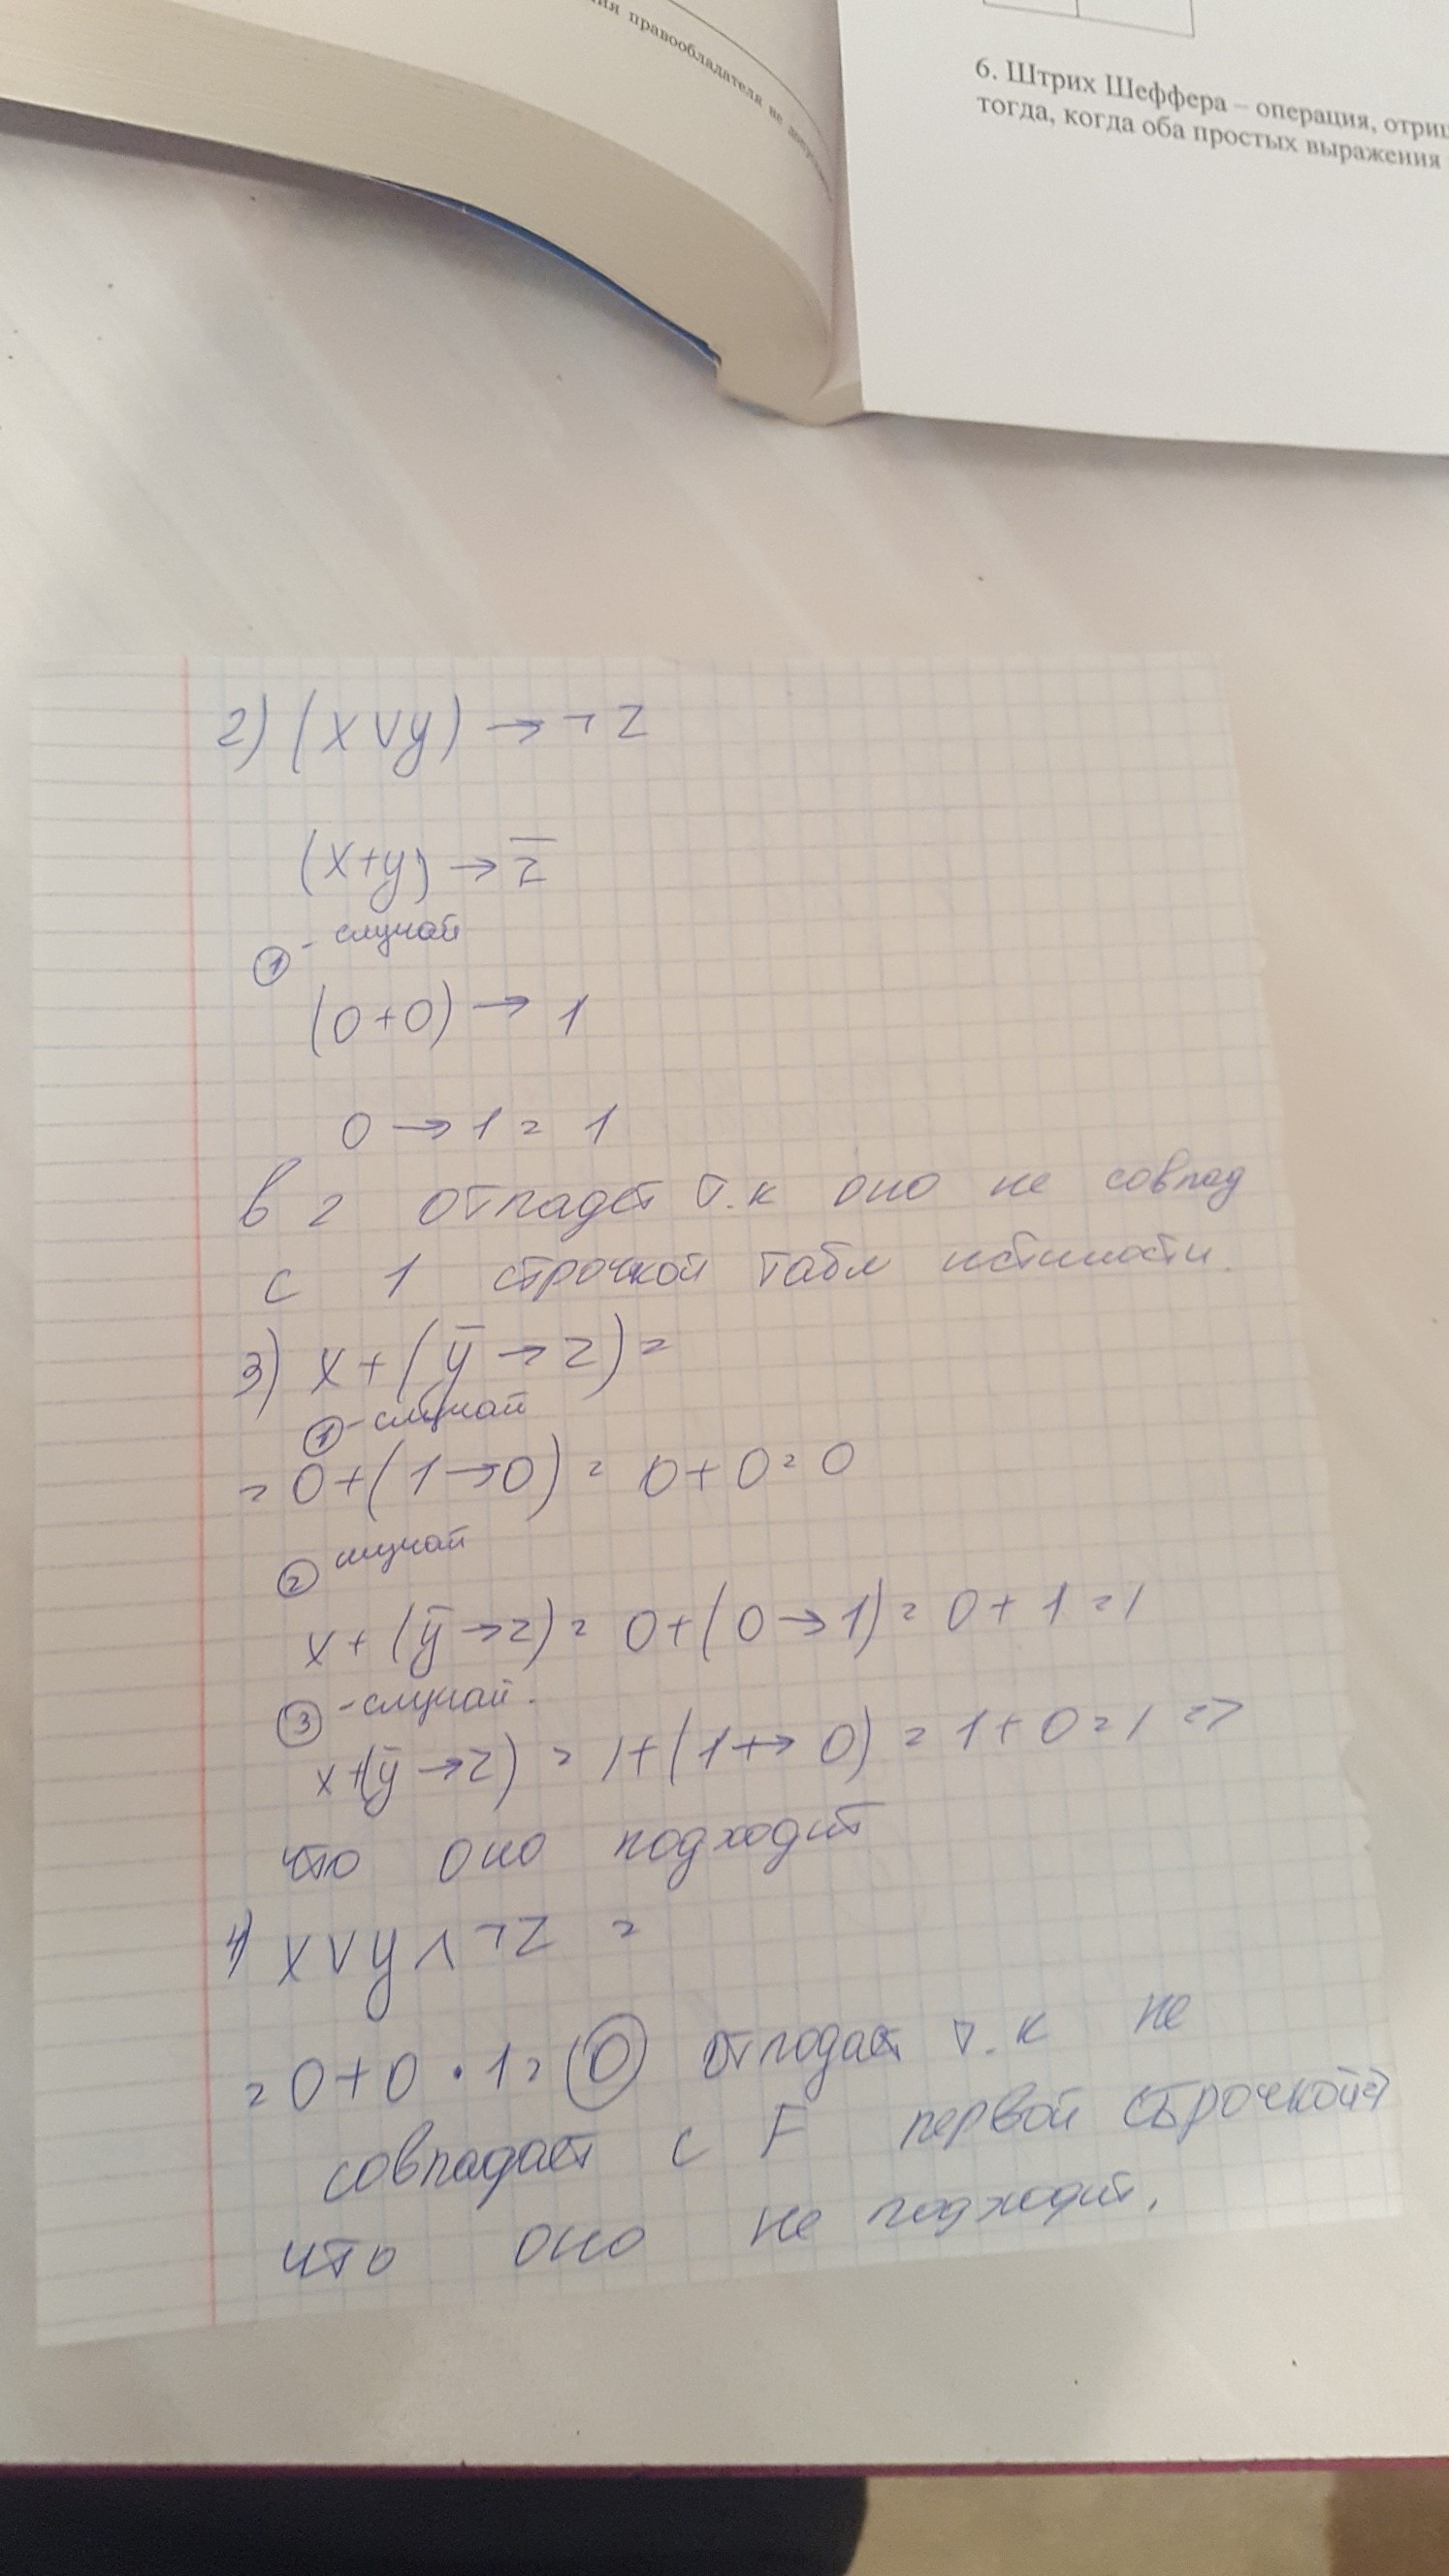 ия правообладателя не
6. Штрих Шеффера – операция, отриц
тогда, когда оба простых выражения
2) (x ∨ y) → ¬ z
(x+y) → z̅
① - случай
(0+0) → 1
0 → 1 = 1
в 2 отпадет т.к оно не совпад
с 1 строчкой табл истиности.
3) x + (y̅ → z) =
① - случай
= 0 + (1 → 0) = 0 + 0 = 0
② случай
x + (y̅ → z) = 0 + (0 → 1) = 0 + 1 = 1
③ - случай.
x + (y̅ → z) = 1 + (1 → 0) = 1 + 0 = 1 =>
что оно подходит
4) x ∨ y ∧ ¬ z =
= 0 + 0 · 1 = 0 отподает т.к не
совпадает с F первой строчкой =>
что оно не подходит.